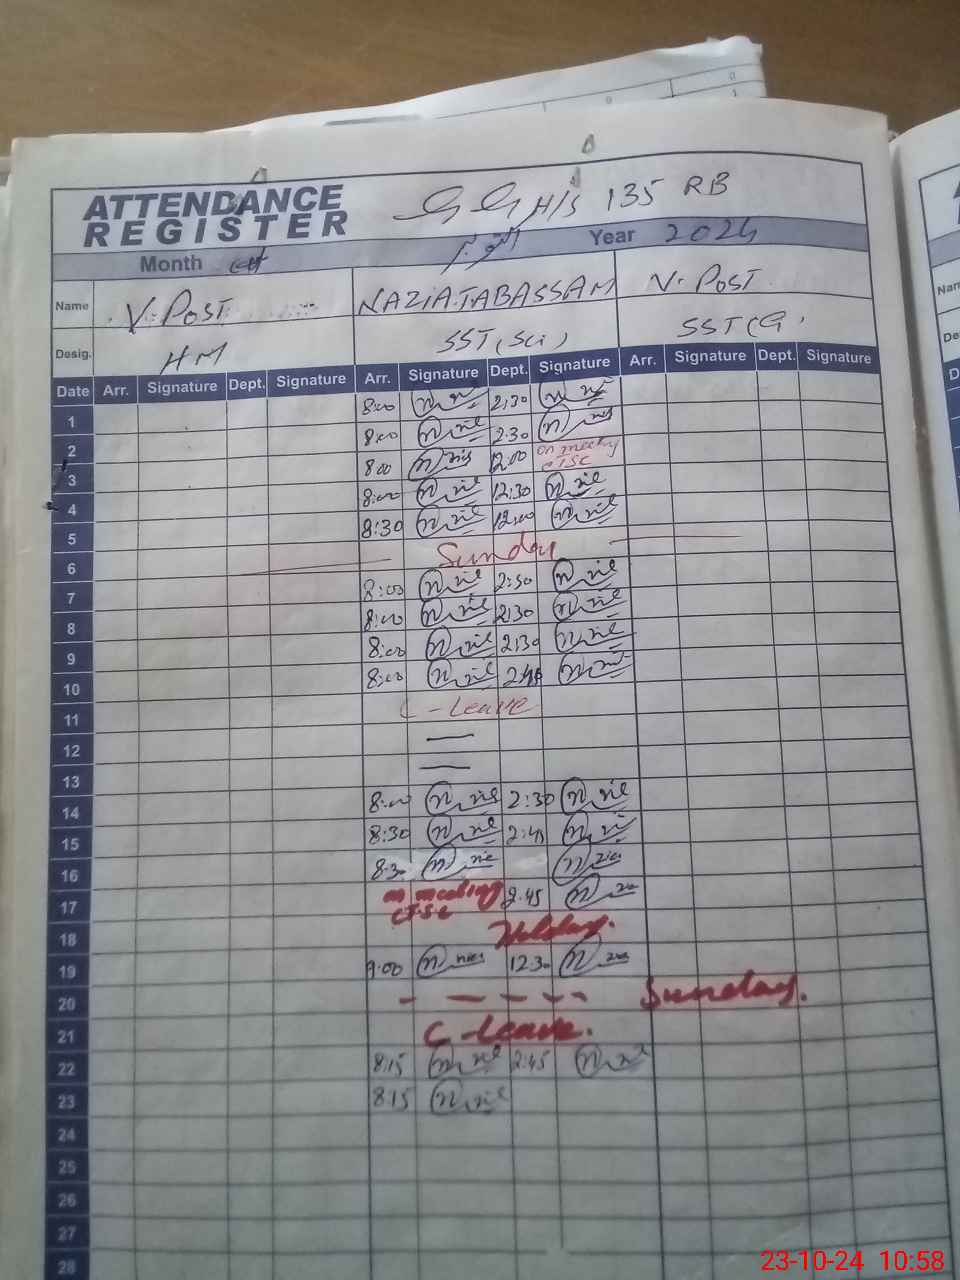 ATTENDANCE
REGISTER
GGH/S 135 RB
Month Oct اکتوبر Year 2024
Name V.POST NAZIA TABASSAM V.POST
Desig. HM SST(Sci) SST(G)
Date Arr. Signature Dept. Signature Arr. Signature Dept. Signature Arr. Signature Dept. Signature
1 8:00 2:30
2 8:00 2:30
3 8:00 12:00 on meeting
4 8:00 12:30
5 8:30 12:00
6 Sunday
7 8:00 2:30
8 8:00 2:30
9 8:00 2:30
10 8:00 2:45
11 C-Leave
12
13
14 8:00 2:30
15 8:30 2:45
16 8:30
17 on meeting 2:45
18 Holiday.
19 9:00 12:30
20 Sunday.
21 C-Leave.
22 8:15 2:45
23 8:15
24
25
26
27
28
23-10-24 10:58